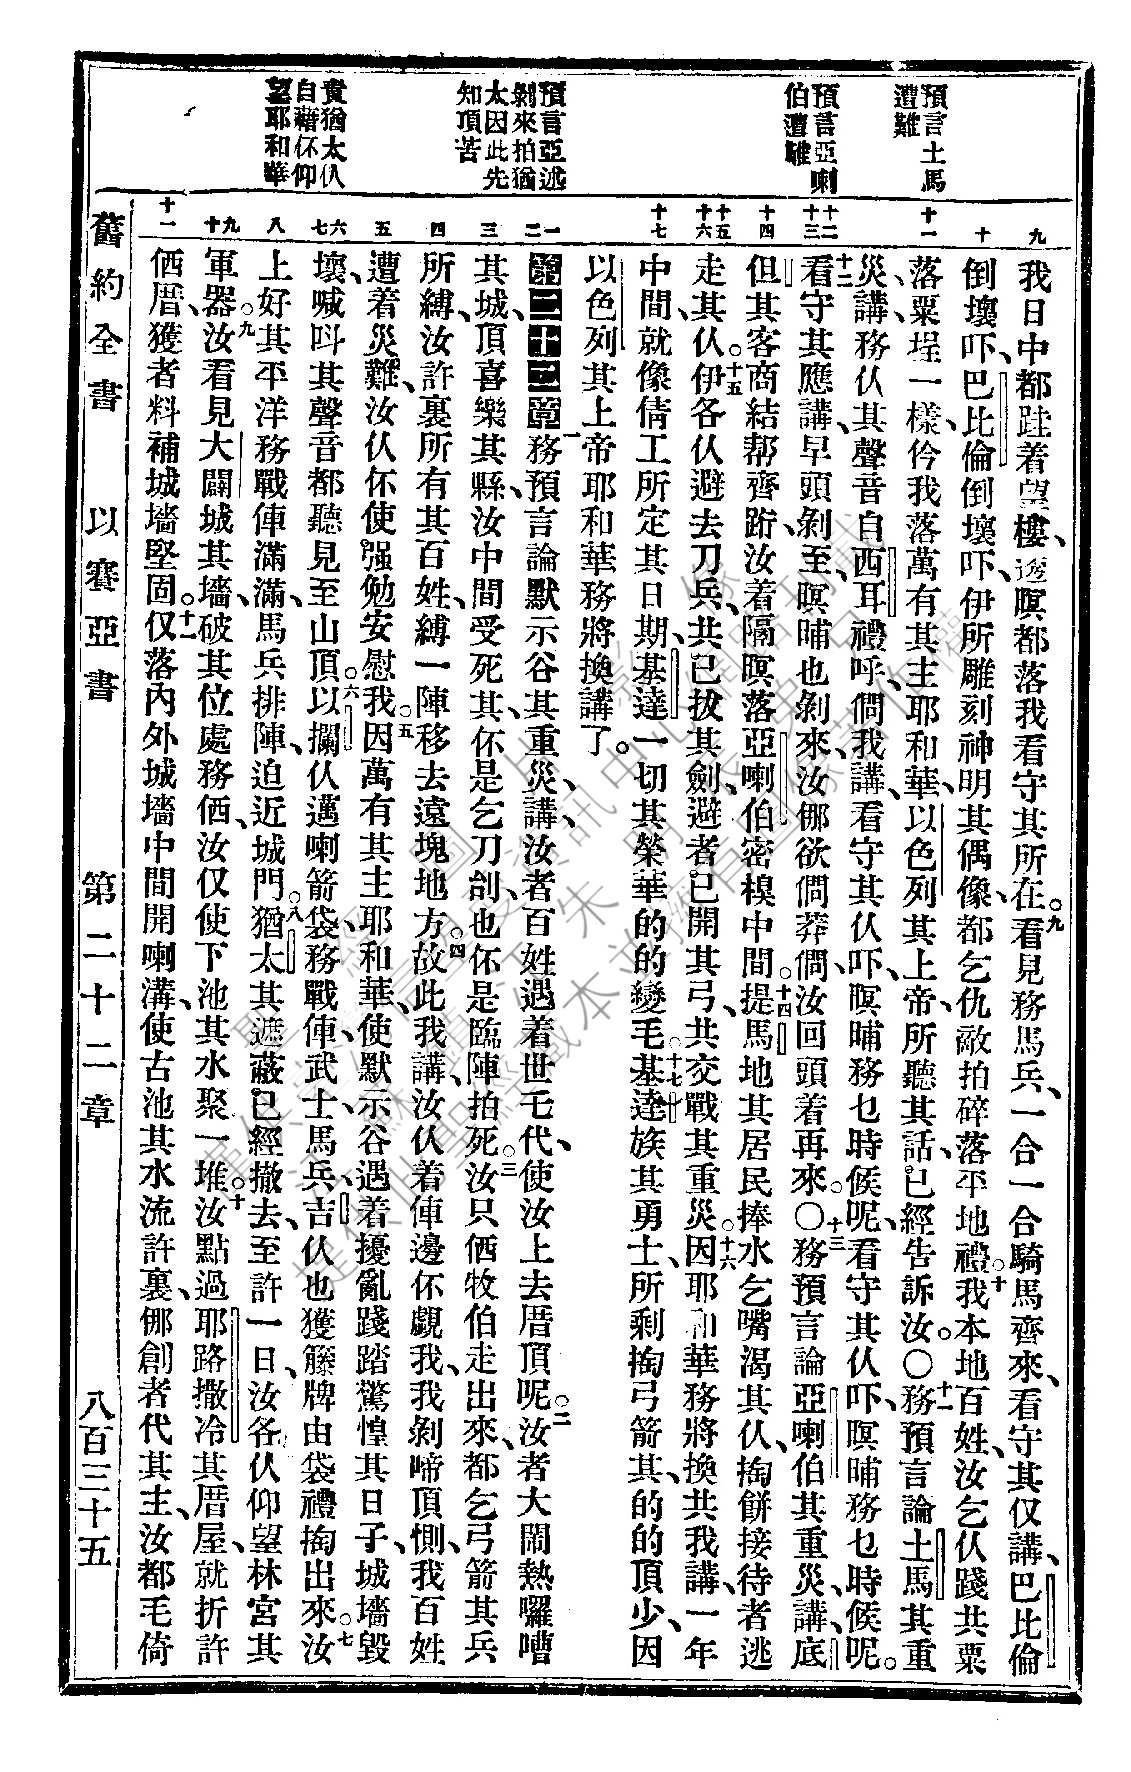 預言土馬
遭難
預言亞喇
伯遭難
預言亞述
剝來拍猶
太因此先
知頂苦
責猶太仈
自藉伓仰
望耶和華
九
十
十一
十二
十三
十四
十五
十六
十七
一
二
三
四
五
六
七
八
九
十
十一
我日中都跬着望樓、透暝都落我看守其所在。九看見務馬兵、一合一合騎馬齊來、看守其仅講、巴比倫
倒壞吓、巴比倫倒壞吓、伊所雕刻神明其偶像、都乞仇敵拍碎落平地禮。十我本地百姓、汝乞仈踐共粟
落粟埕一樣、伶我落萬有其主耶和華、以色列其上帝、所聽其話、已經告訴汝。〇十一務預言論土馬其重
災、講務仈其聲音、自西耳禮呼、倜我講、看守其仈吓、暝晡務乜時候呢、看守其仈吓、暝晡務乜時候呢。
十二看守其應講、早頭剝至、暝晡也剝來、汝㑚欲倜莽倜、汝回頭着再來。〇十三務預言論亞喇伯其重災、講、底
但其客商結帮齊跡、汝着隔暝落亞喇伯密模中間。十四提馬地其居民、捧水乞嘴渴其仈、掏餅接待者逃
走其仈。十五伊各仈避去刀兵、共已拔其劍、避者已開其弓、共交戰其重災。十六因耶和華務將換共我講、一年
中間、就像倩工所定其日期、基達一切其榮華的的變毛。十七基達族其勇士、所剩掏弓箭其、的的頂少、因
以色列其上帝耶和華務將換講了。
第二十二章一務預言論默示谷其重災、講、汝者百姓遇着世乇代、使汝上去厝頂呢。二汝者大鬧熱囉嘈
其城、頂喜樂其縣、汝中間受死其、伓是乞刀刣、也伓是臨陣拍死。三汝只価牧伯走出來、都乞弓箭其兵
所縛、汝許裏所有其百姓、縛一陣移去遠塊地方。四故此我講、汝仈着俥邊伓覷我、我剝啼頂惻、我百姓
遭着災難、汝仈伓使强勉安慰我。五因萬有其主耶和華、使默示谷遇着擾亂踐踏驚惶其日子、城墻毀
壞、喊叫其聲音、都聽見至山頂。六以攔仈邁喇箭袋、務戰俥、武士、馬兵、吉仈也獲籐牌由袋禮掏出來。七汝
上好其平洋、務戰俥滿滿、馬兵排陣、迫近城門。八猶太其遮蔽、已經撤去、至許一日、汝各仈仰望林宮其
軍器。九汝看見大闢城其墻、破其位處務価、汝仅使下池其水聚一堆。十汝點過耶路撒冷其厝屋、就折許
価厝、獲者料補城墻堅固。十一仅落內外城墻中間開喇溝、使古池其水流許裏、㑚創者代其主、汝都毛倚
舊約全書　以賽亞書　第二十二章　八百三十五